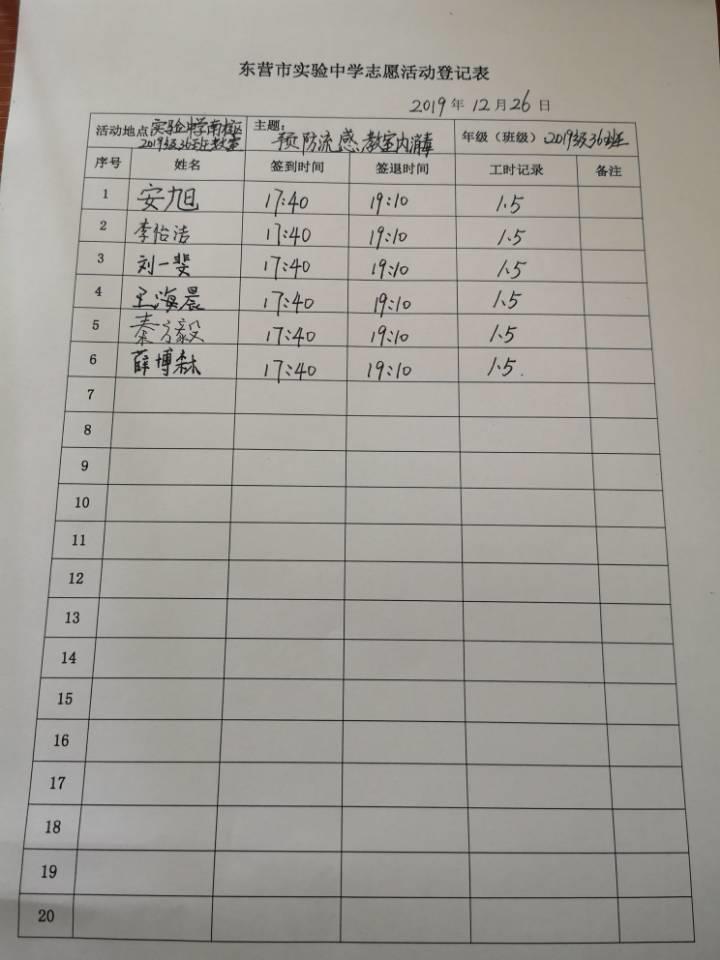 东营市实验中学志愿活动登记表
2019年12月26日
活动地点 实验中学南校区 2019级36班教室 主题: 预防流感,教室内消毒 年级(班级) 2019级36班
序号 姓名 签到时间 签退时间 工时记录 备注
1 安旭 17:40 19:10 1.5
2 李怡洁 17:40 19:10 1.5
3 刘一斐 17:40 19:10 1.5
4 王海晨 17:40 19:10 1.5
5 秦方毅 17:40 19:10 1.5
6 薛博森 17:40 19:10 1.5
7
8
9
10
11
12
13
14
15
16
17
18
19
20